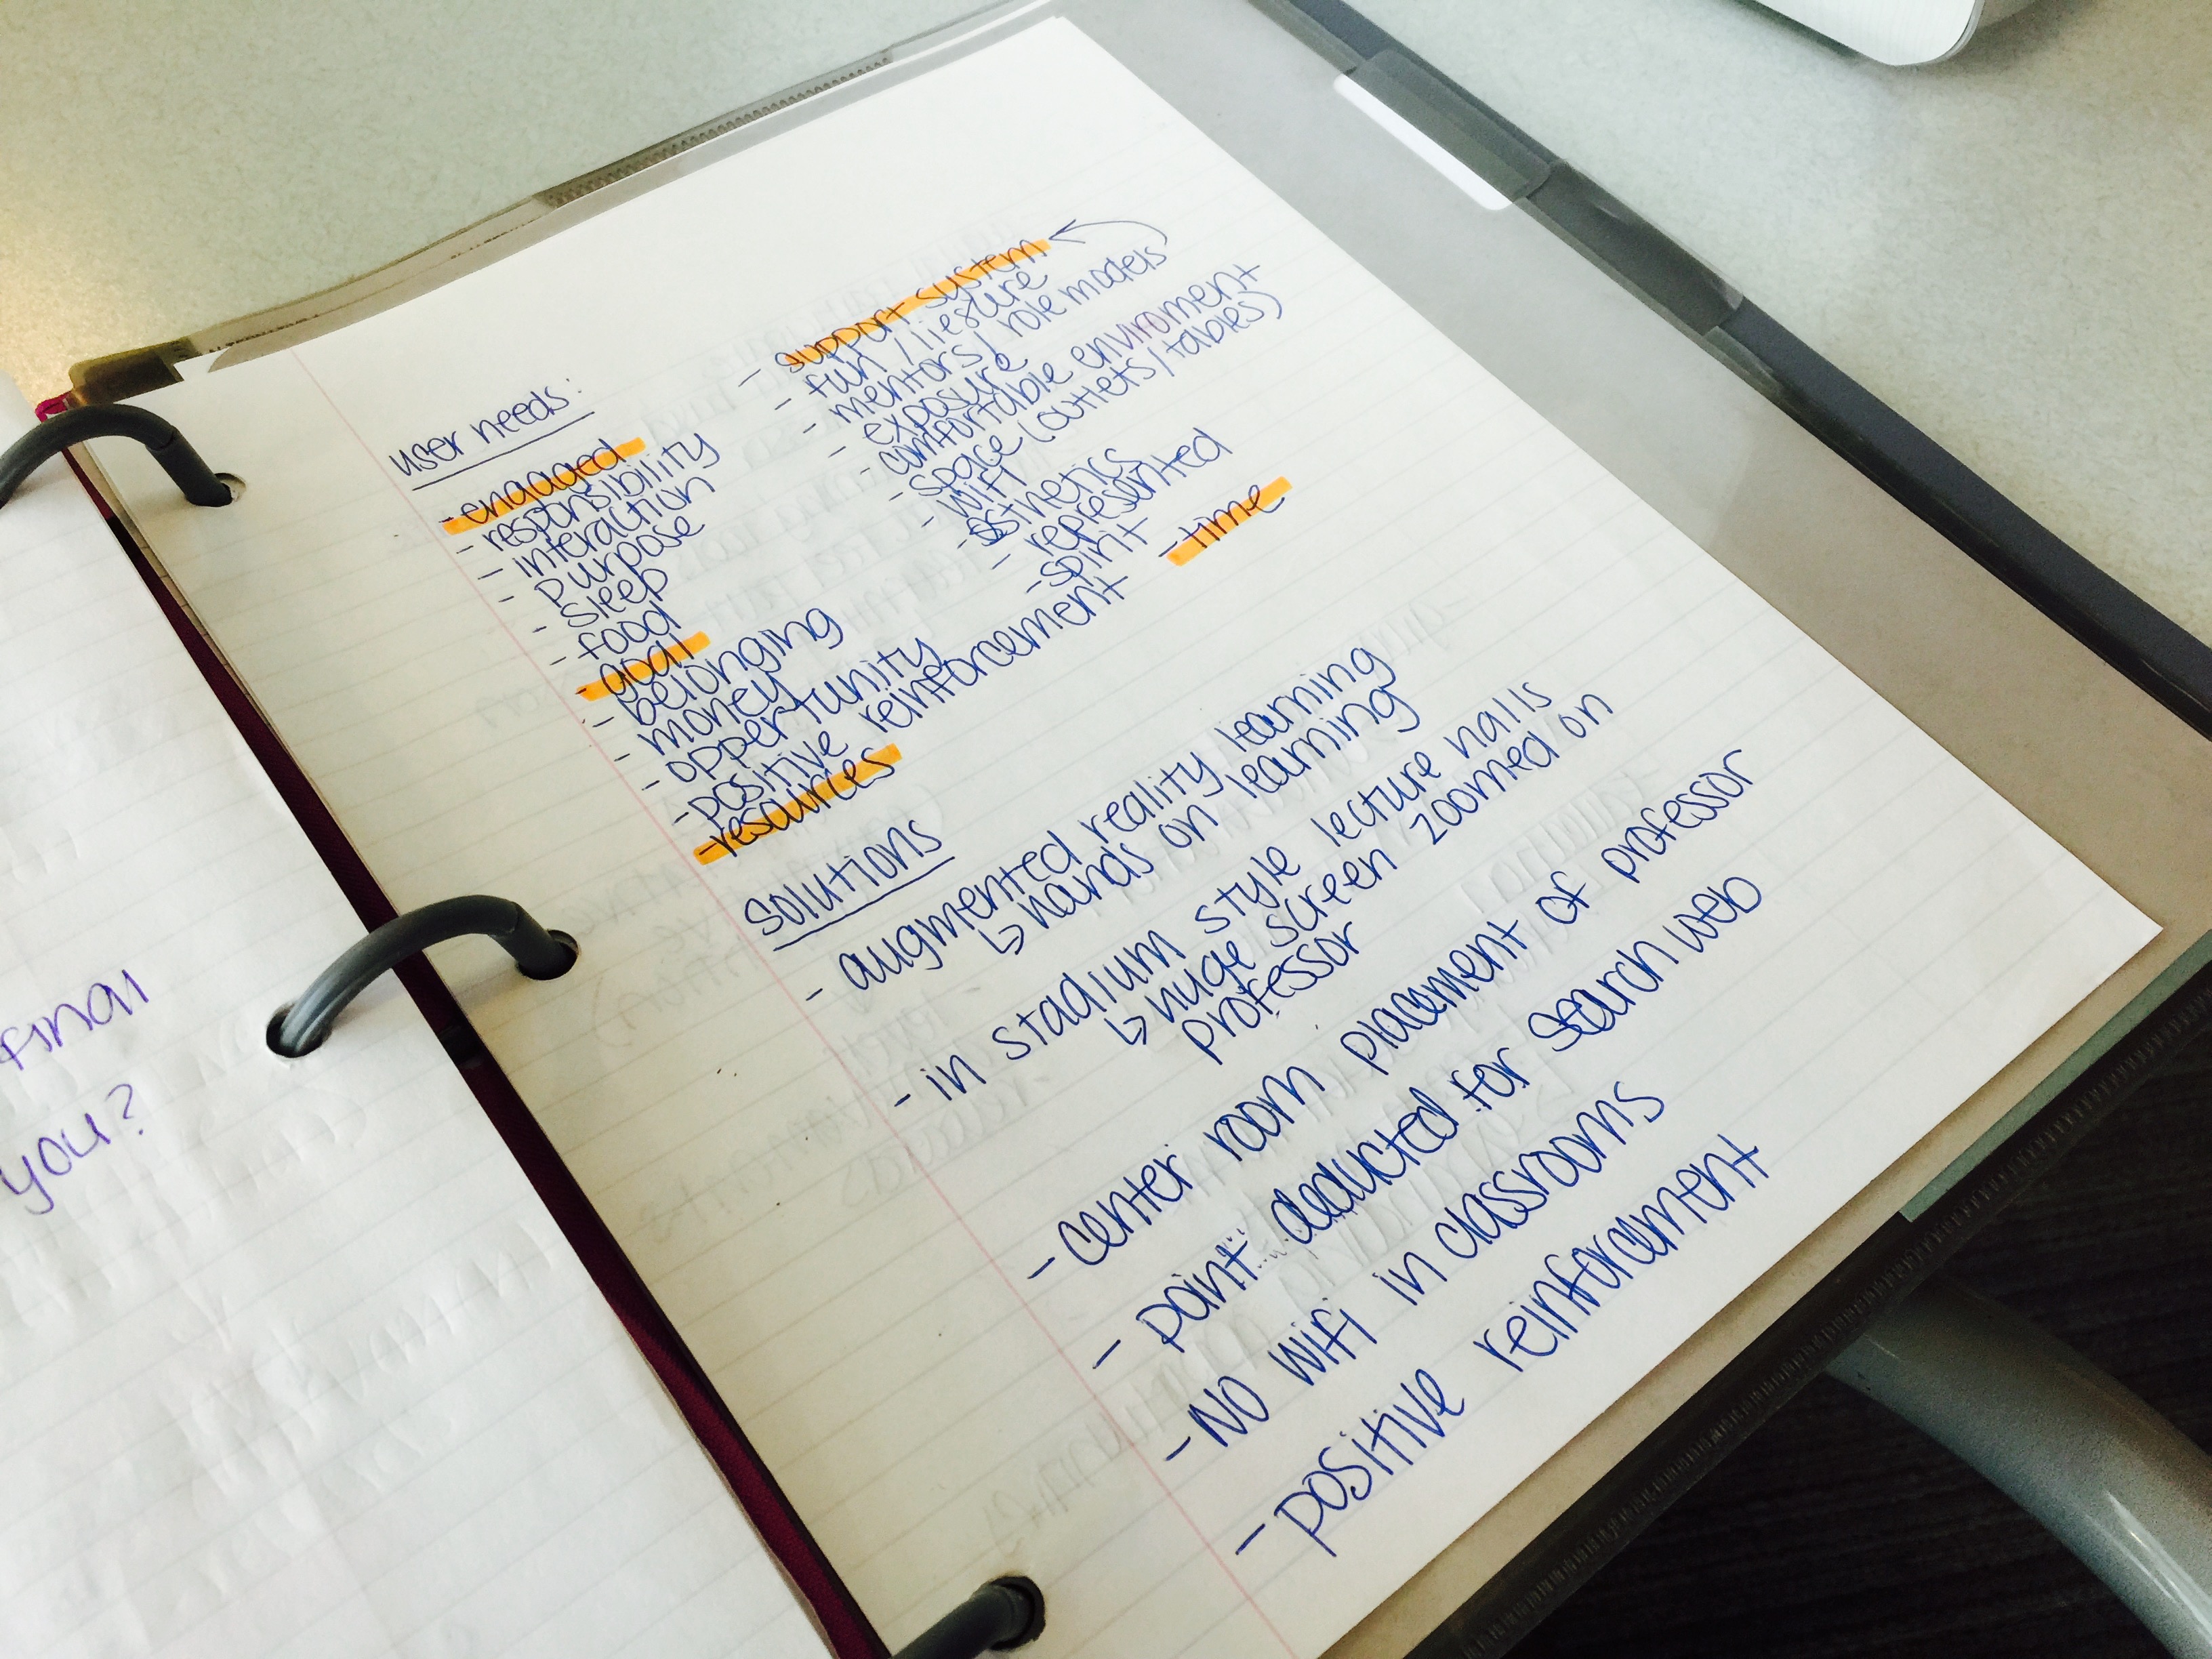 user needs:
- engaged
- responsibility
- interaction
- purpose
- sleep
- food
- goal
- belonging
- money
- oppertunity
- positive reinforcement
- resources
- support system
- fun / liesure
- mentors / role models
- exposure
- comfortable enviroment
- space (outlets / tables)
- wifi
- esthetics
- represented
- spirit
- time
solutions
- augmented reality learning
↳ hands on learning
- in stadium style lecture halls
↳ huge screen zoomed on
professor
- center room placement of professor
- point deducted for search web
- NO wifi in classrooms
- positive reinforcement
final
you?